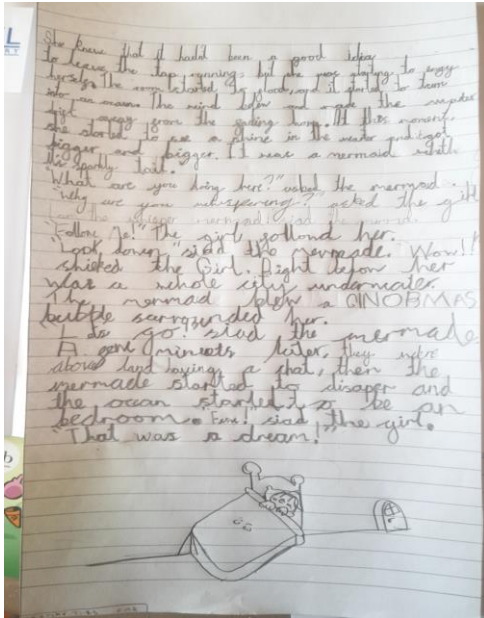 She knew that it hadn't been a good idea
to leave the tap running, but she was starting to enjoy
herself. The room started to flood, and it started to turn
into an ocean. The wind blew and made the water
drift away from the At this moment,
she started to see a shine in the water and got
bigger and bigger. It was a mermaid with
it's sparkly tail."
"What are you doing here?" asked the mermaid.
"Why are you whispering?" asked the girl
the whisper mermaid: siad the
"Follow Me!" The girl follond her.
"Look down," siad the mermade. Wow!!
shieked the Girl. Right below her
was a whole city underwater.
The mermad blew a GINORMAS
bubble sarrounded her.
Lets go! siad the mermade
A few minuets later, they were
above land having a chat, then the
mermade started to disaper and
the ocean started to be an
bedroom. siad the girl.
"That was a dream!"